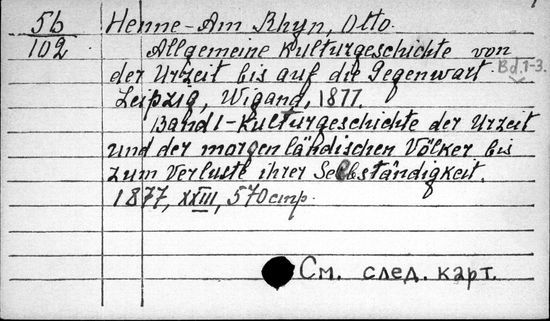 5б Henne-Am Rhyn, Otto.
102 Allgemeine Kulturgeschichte von
der Urzeit bis auf die Gegenwart Bd.1-3.
Leipzig, Wigand, 1877.
Band I-Kulturgeschichte der Urzeit
und der morgenländischen Völker bis
zum Verluste ihrer Selbständigkeit.
1877, XXIII, 570 стр.
См. след. карт.